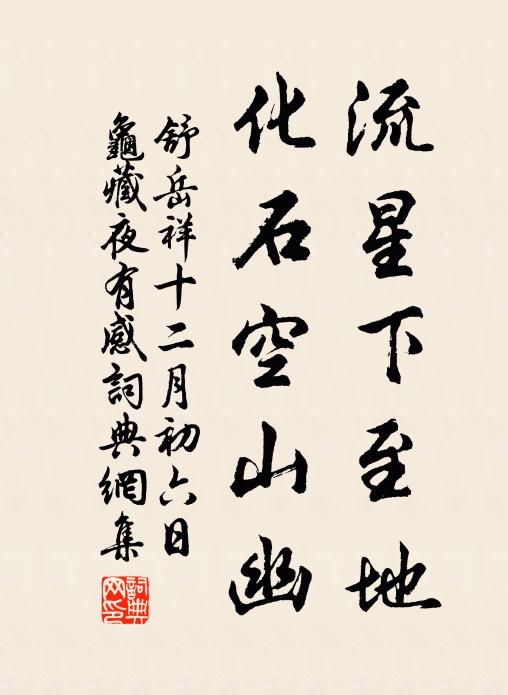 流星下至地
化石空山幽
舒岳祥十二月初六日
龜藏夜有感詞典網集
詞典网印